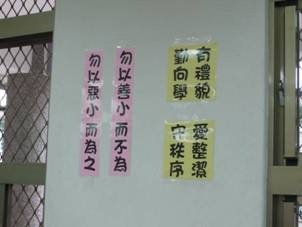 有禮貌
勤向學
愛整潔
守秩序
勿以善小而不為
勿以惡小而為之